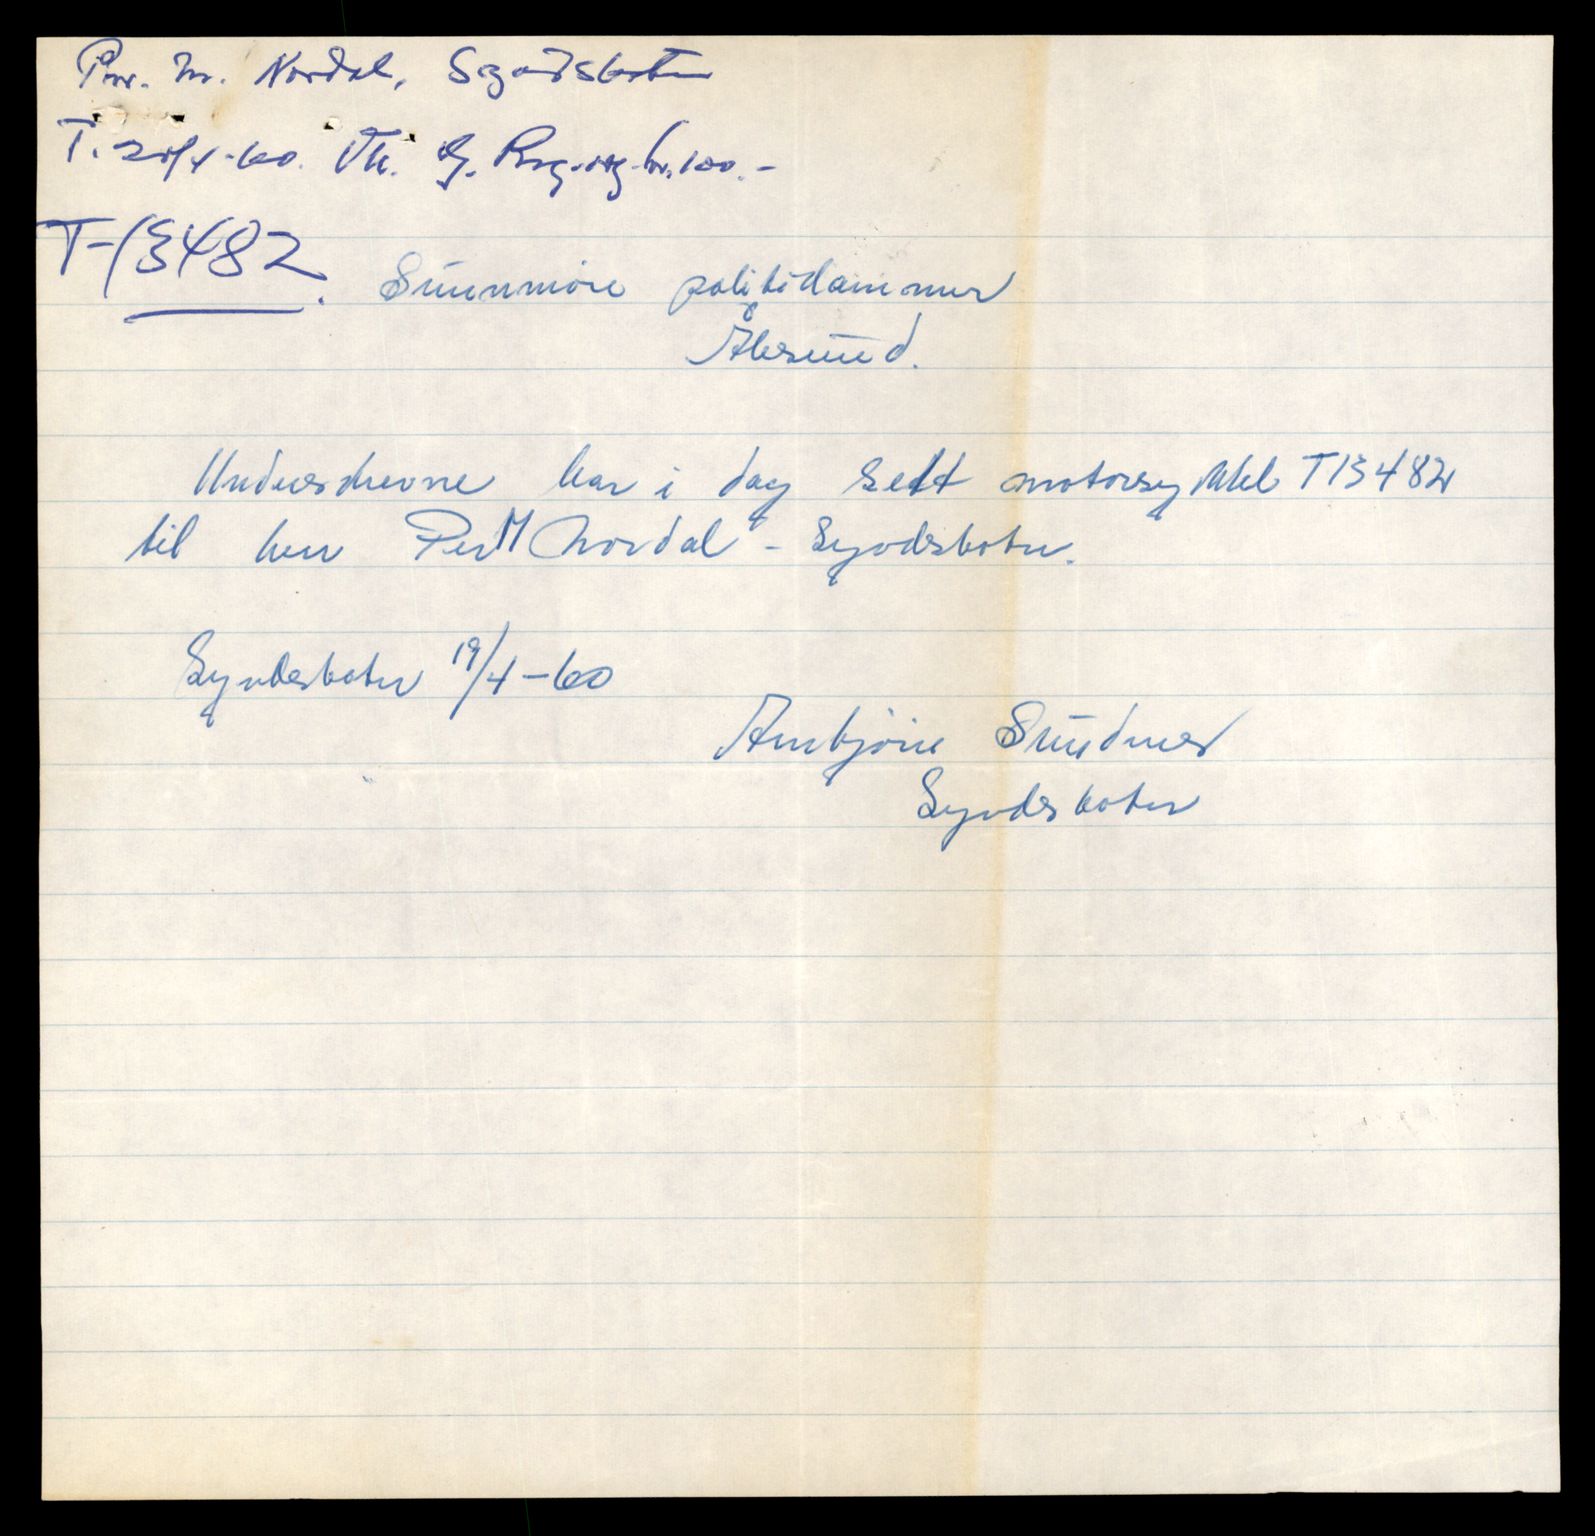 Per M. Nordal, Syvdsbotn
T. 20/4-60. Kr. 100.-
T-13482.
Sunnmöre politikammer
Ålesund.
Underskrevne har i dag selt motorsykkel T13482
til herr Per M Nordal - Syvdsbotn.
Syvdsbotn 19/4-60
Arnbjörn Sundnes
Syvdsbotn